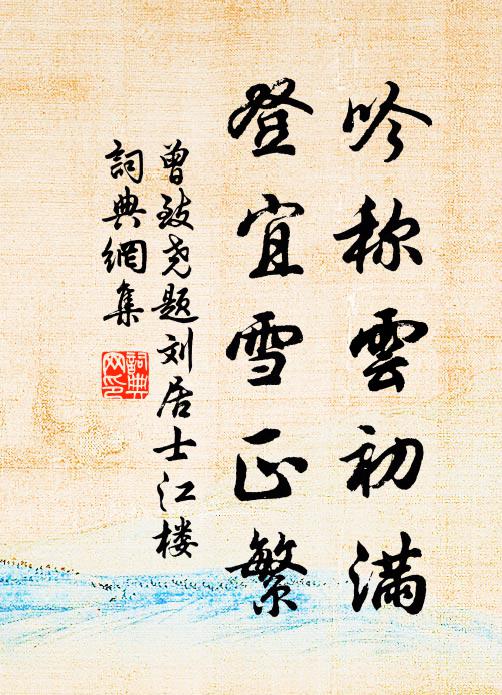 吟称雲初满
登宜雪正繁
曾致尧题刘居士江楼
詞典網集
詞典网印